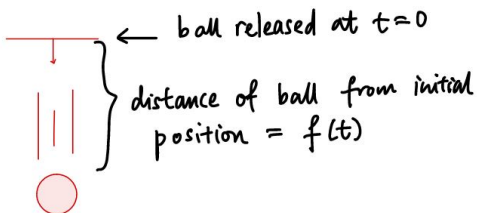 ball released at t=0
distance of ball from initial
position = f(t)